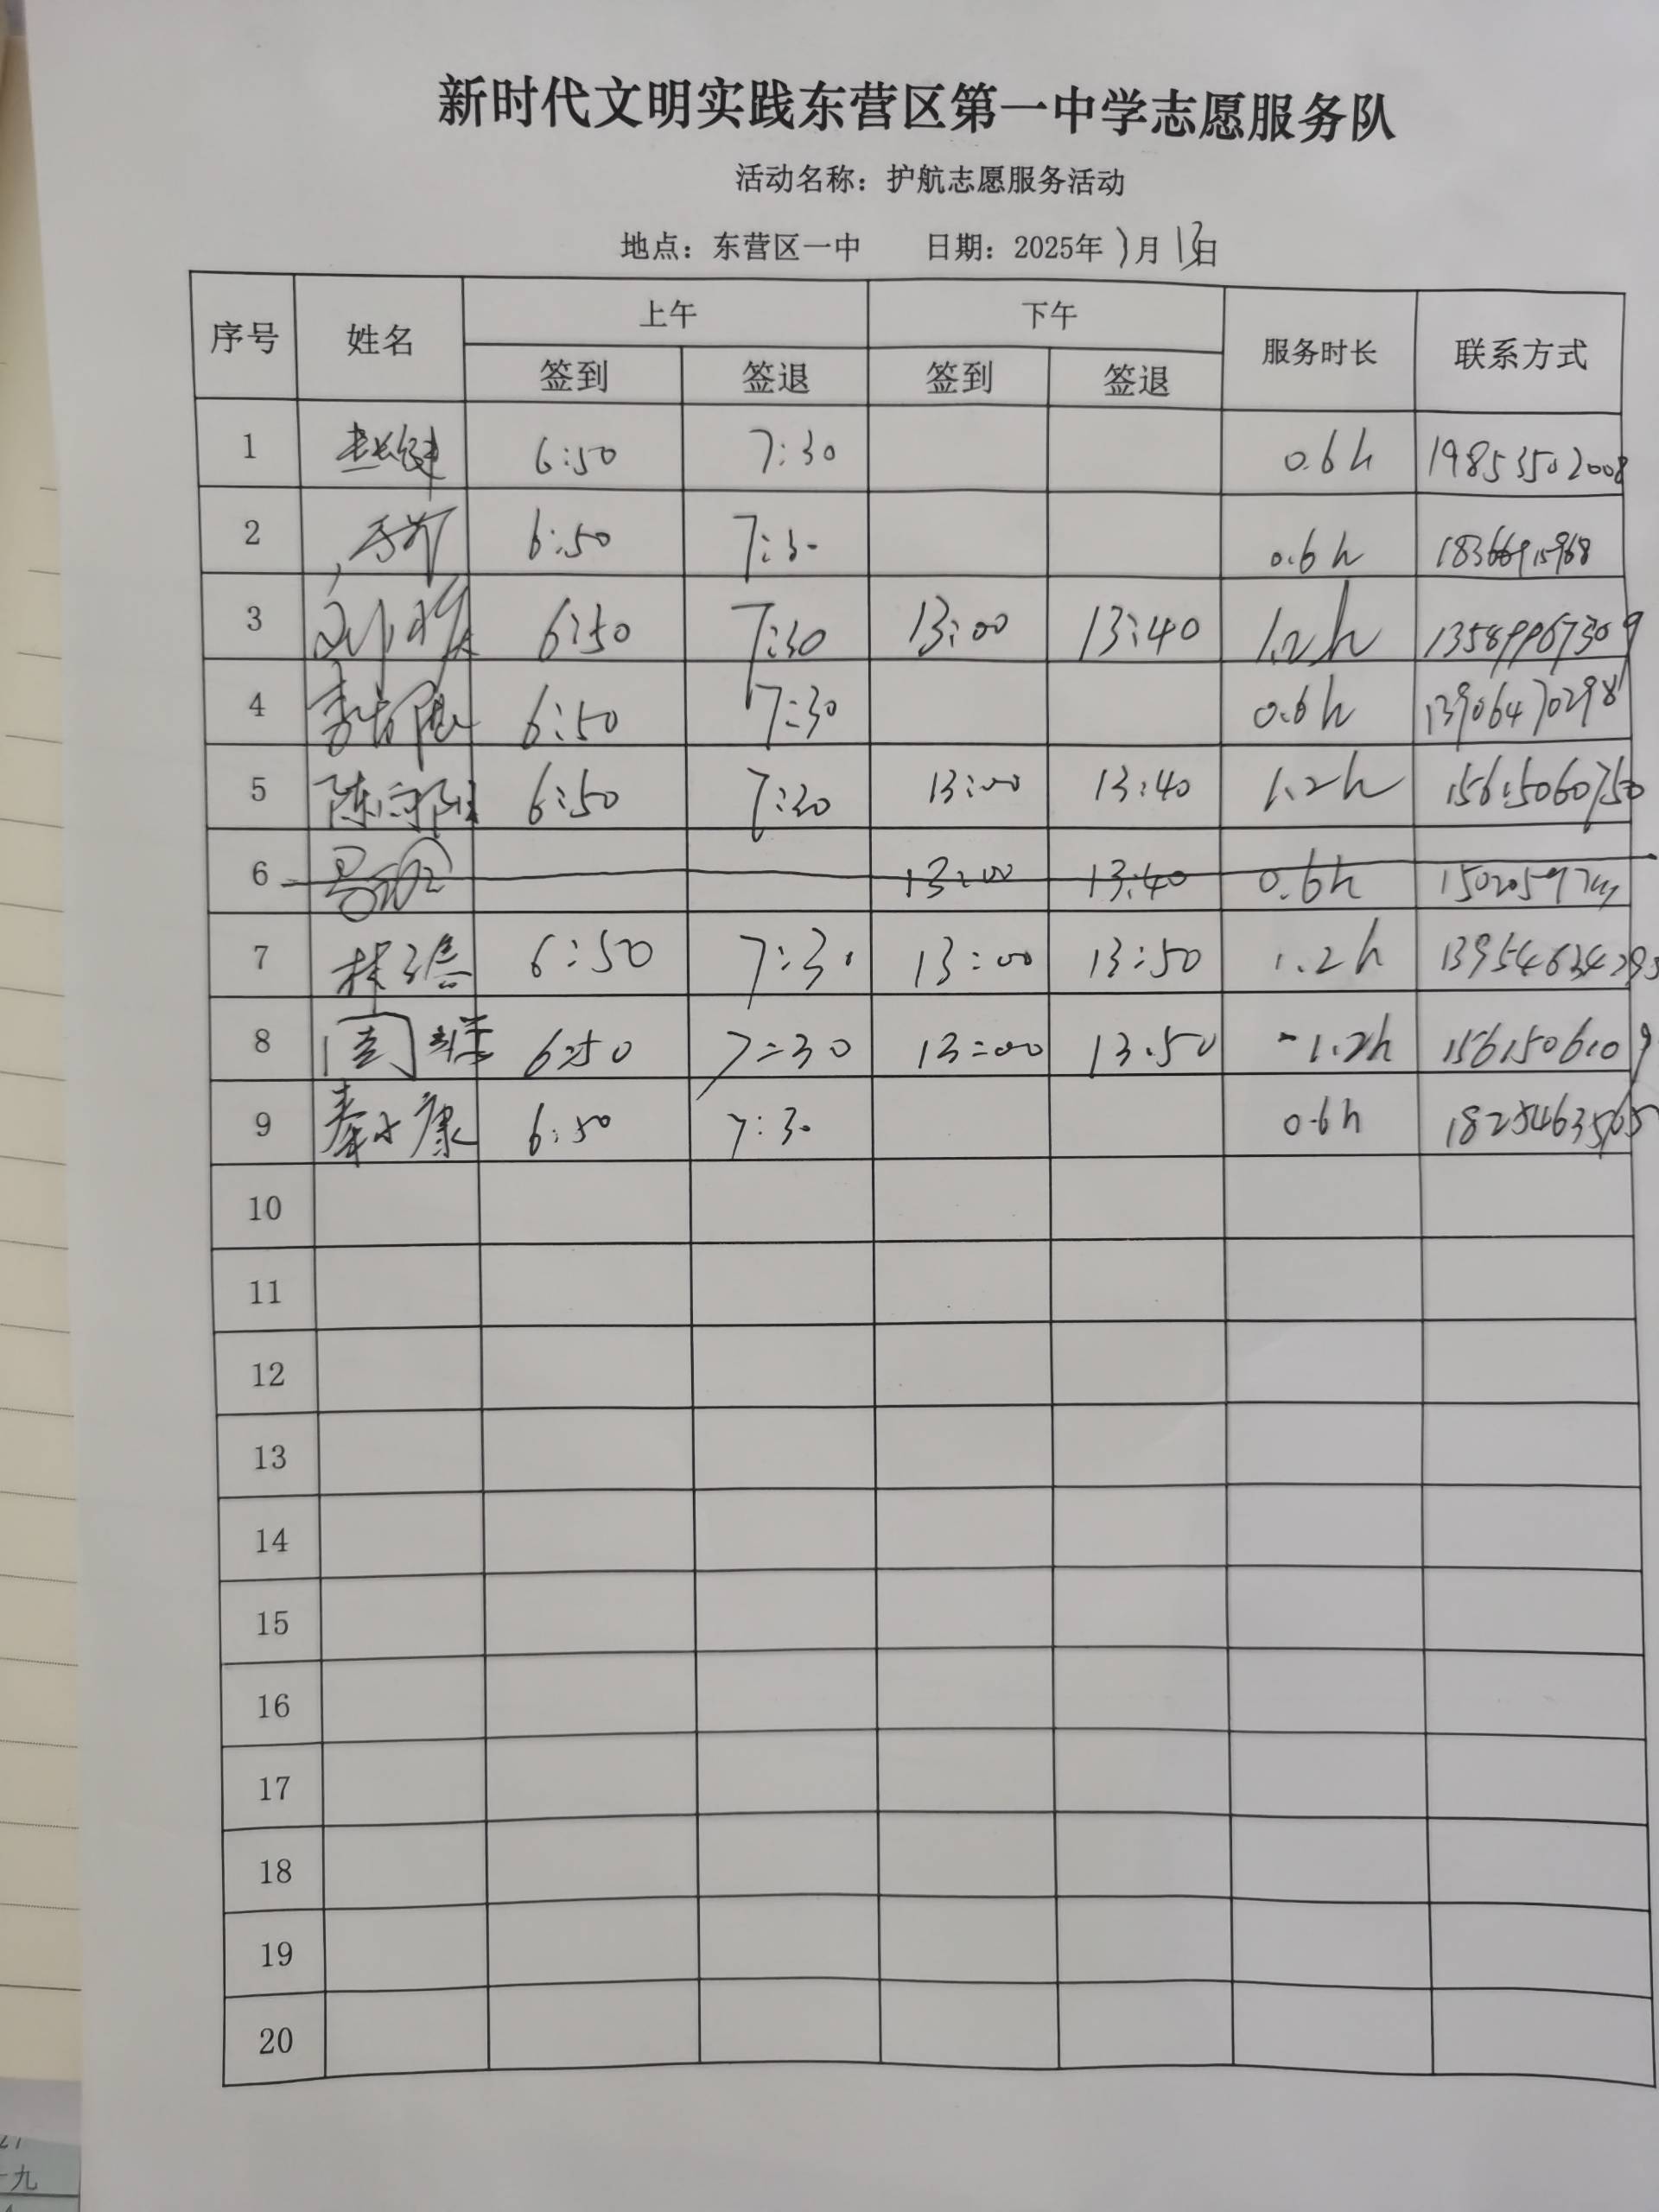 新时代文明实践东营区第一中学志愿服务队
活动名称：护航志愿服务活动
地点：东营区一中 日期：2025年 月13日
序号 姓名 上午 下午 服务时长 联系方式
签到 签退 签到 签退
1 赵健 6:50 7:30 0.6h 19853502008
2 6:50 7:30 0.6h 18366915968
3 6:50 7:30 13:00 13:40 1.2h 13589967309
4 6:50 7:30 0.6h 13906470298
5 陈向阳 6:50 7:30 13:00 13:40 1.2h 15615060750
6 13:00 13:40 0.6h
7 6:50 7:30 13:00 13:50 1.2h 13954634293
8 6:50 7:30 13:00 13:50 1.2h 1561506109
9 秦小康 6:50 7:30 0.6h 18254635565
10
11
12
13
14
15
16
17
18
19
20
九